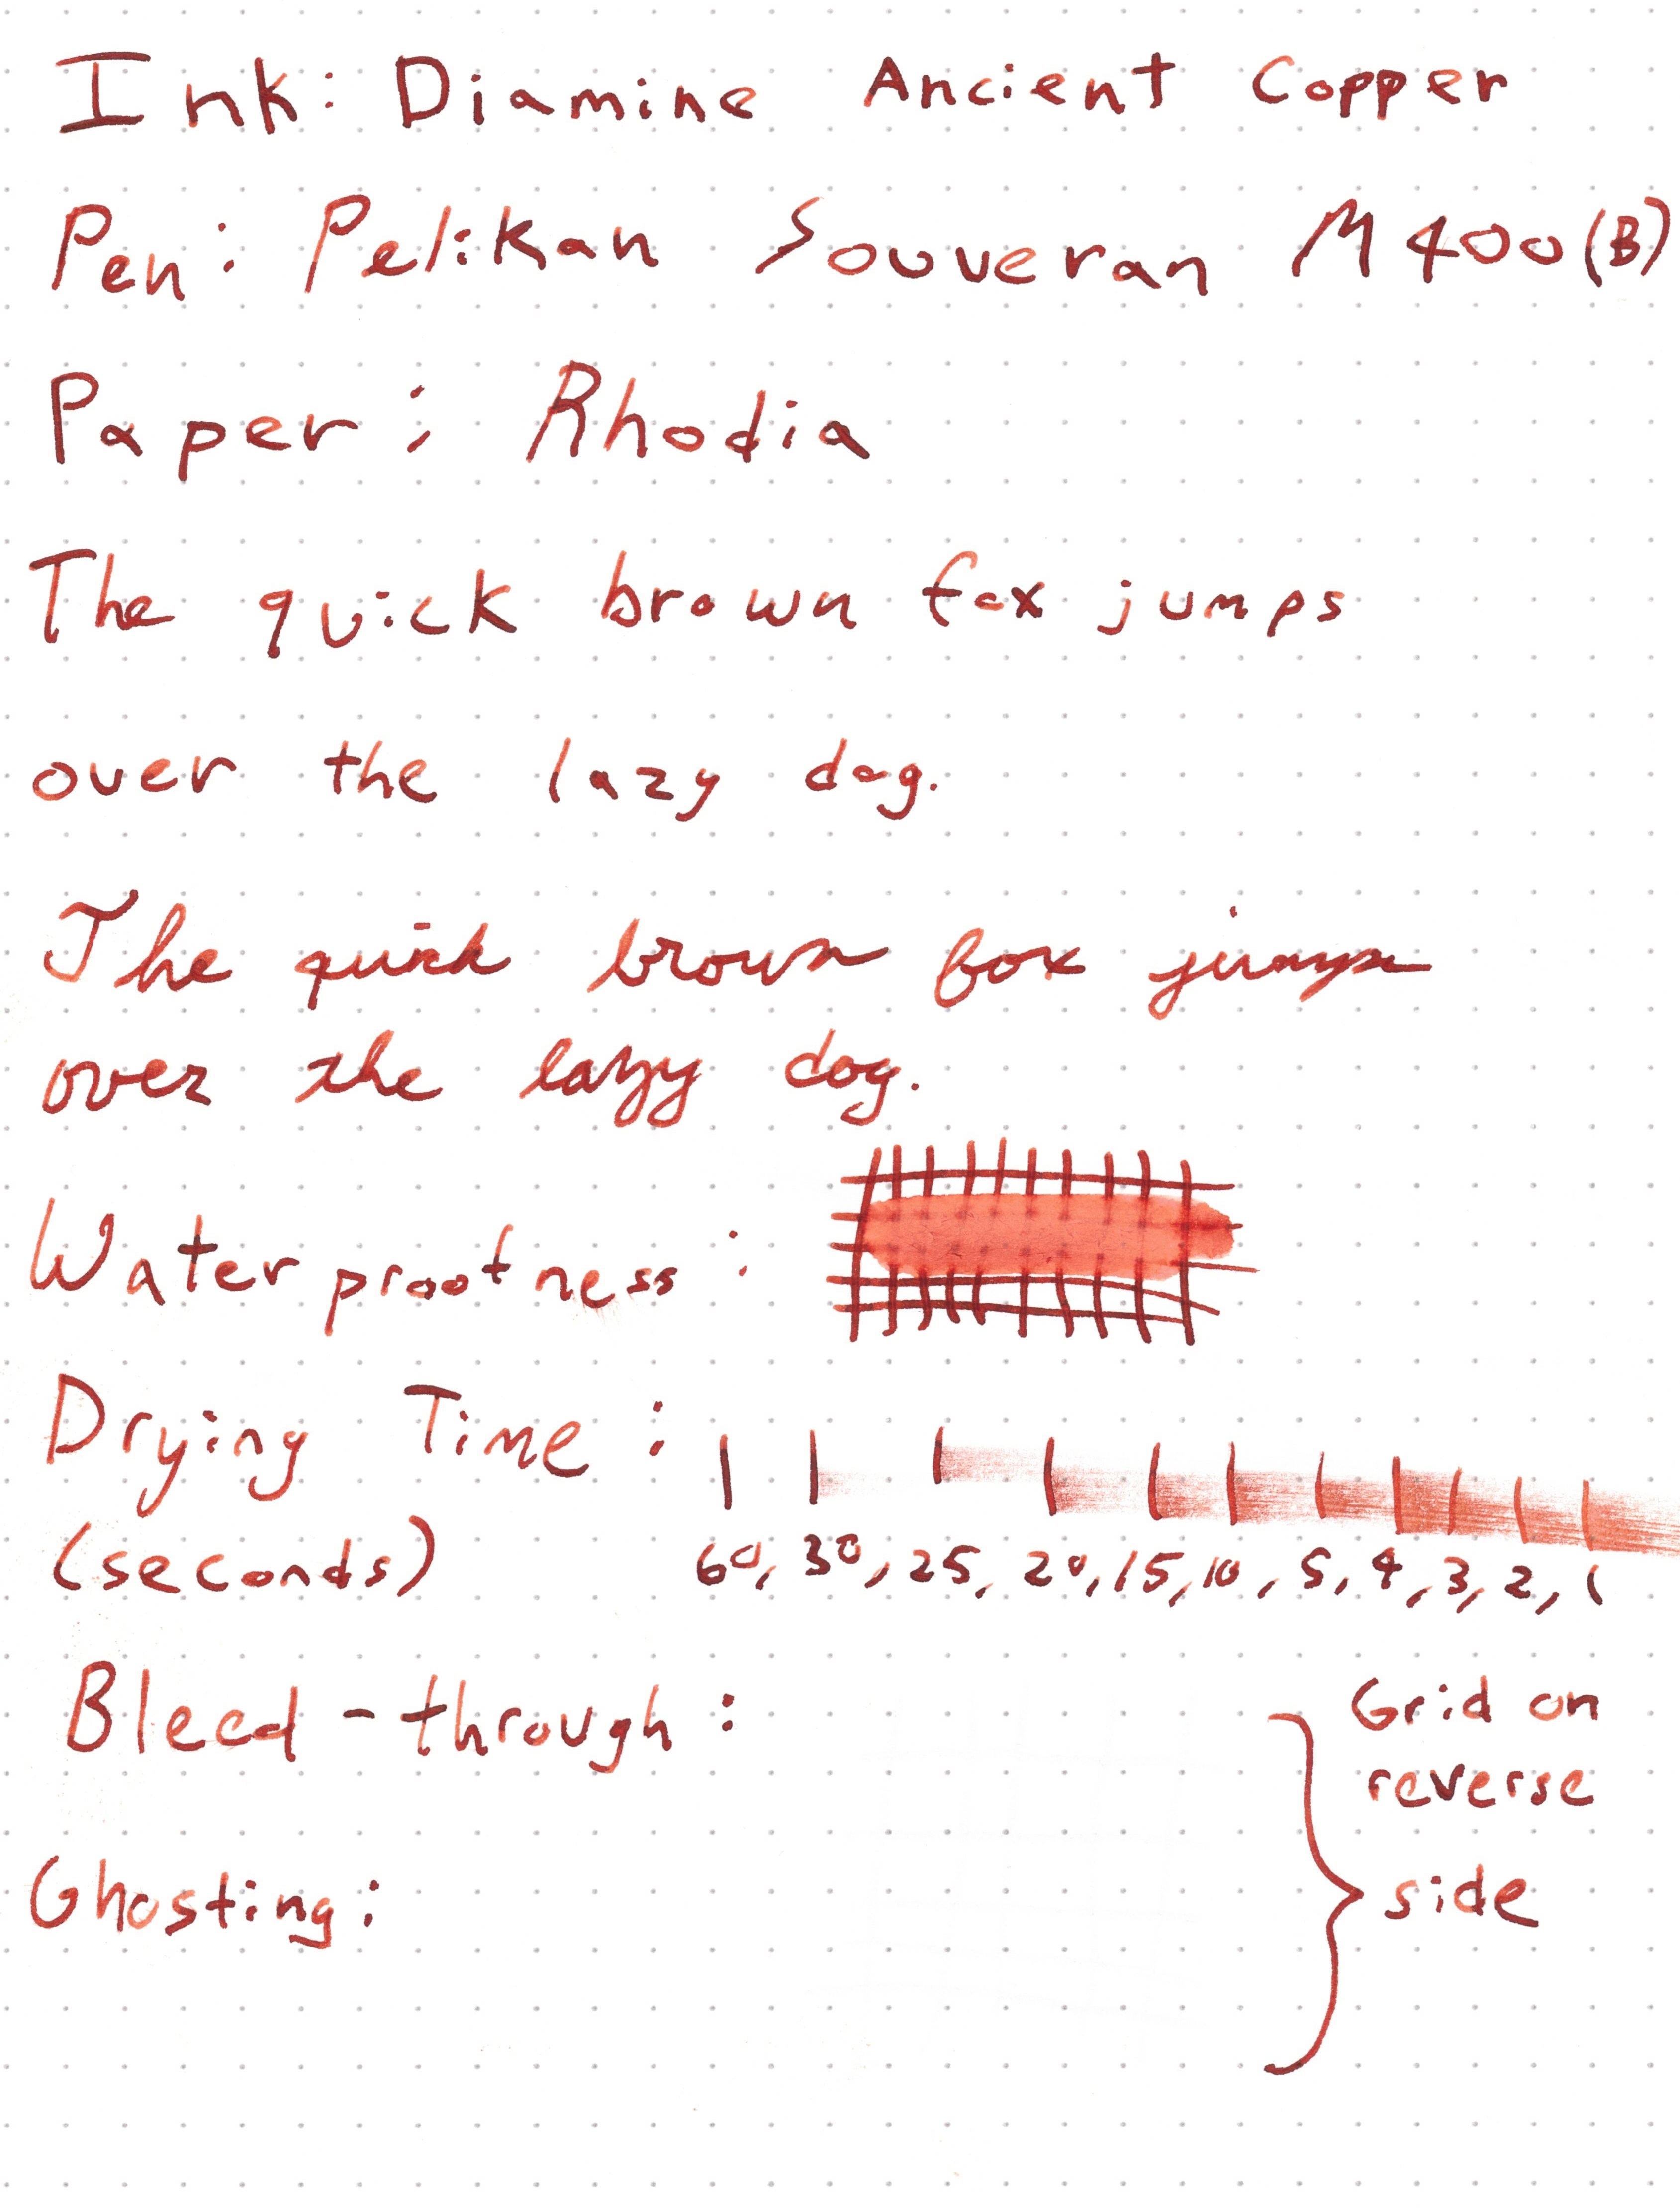 Ink: Diamine Ancient Copper
Pen: Pelikan Souveran M400 (B)
Paper: Rhodia
The quick brown fox jumps
over the lazy dog.
The quick brown fox jumps
over the lazy dog.
Waterproofness:
Drying Time:
(seconds) 60, 30, 25, 20, 15, 10, 5, 4, 3, 2, 1
Bleed-through:
Grid on
reverse
side
Ghosting: